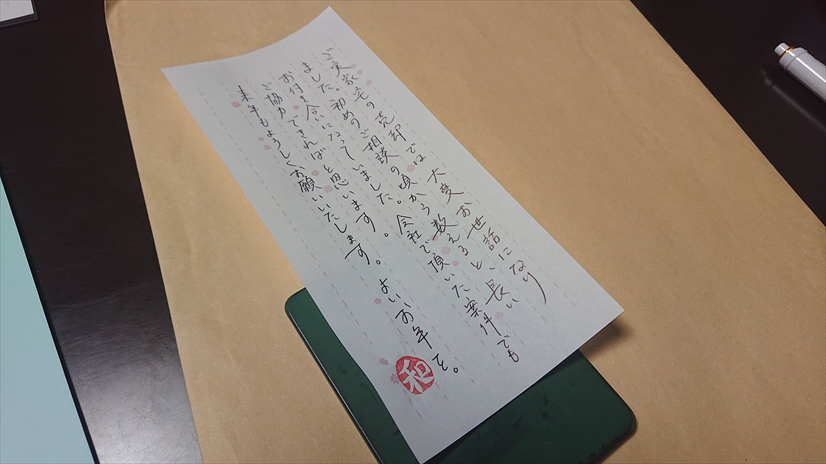 ご実家宅の売却では大変お世話になり
ました。初めのご相談の頃から数えると、長い
お付き合いになっていました。会社で頂いた案件でも
ご協力できればと思います。
来年もよろしくお願いいたします。よいお年を。
和